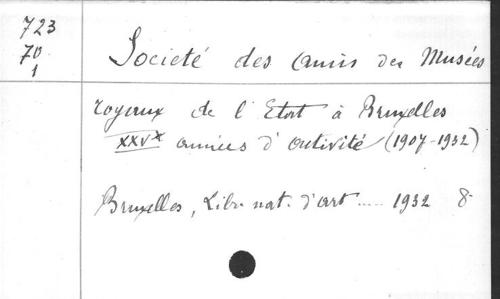 723
70
1
Societé des Amis des Musées
royaux de l'Etat à Bruxelles
XXVx années d'activité (1907-1932)
Bruxelles, Libr. nat. d'art ..... 1932 8°